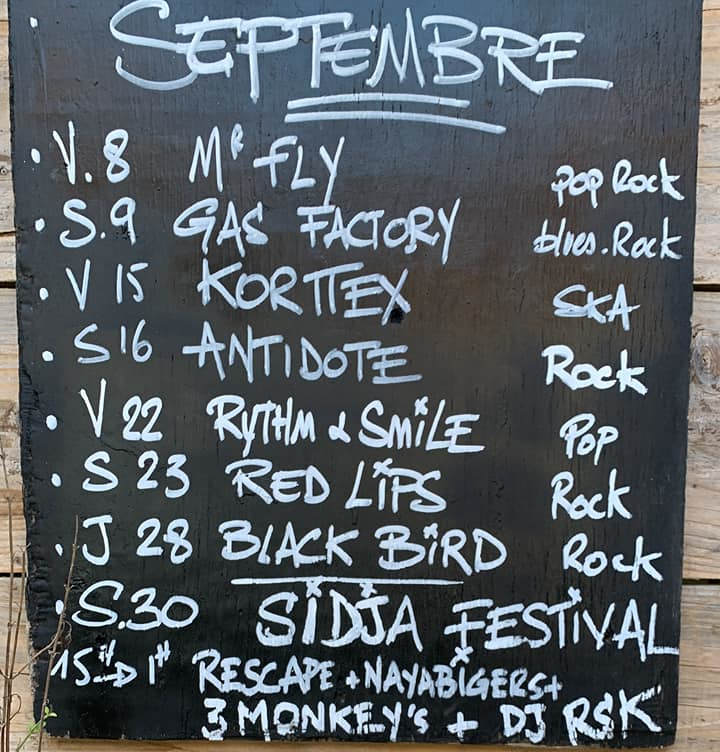 SEPTEMBRE
• V. 8 Mʀ FLY pop Rock
• S. 9 GAS FACTORY blues. Rock
• V 15 KORTTEX SKA
• S 16 ANTIDOTE Rock
• V 22 RYTHM & SMiLE Pop
• S 23 RED LiPS Rock
• J 28 BLACK BiRD Rock
• S. 30 SiDJA FESTiVAL
15H→1H RESCAPE + NAYABIGERS +
3 MONKEY's + DJ RSK